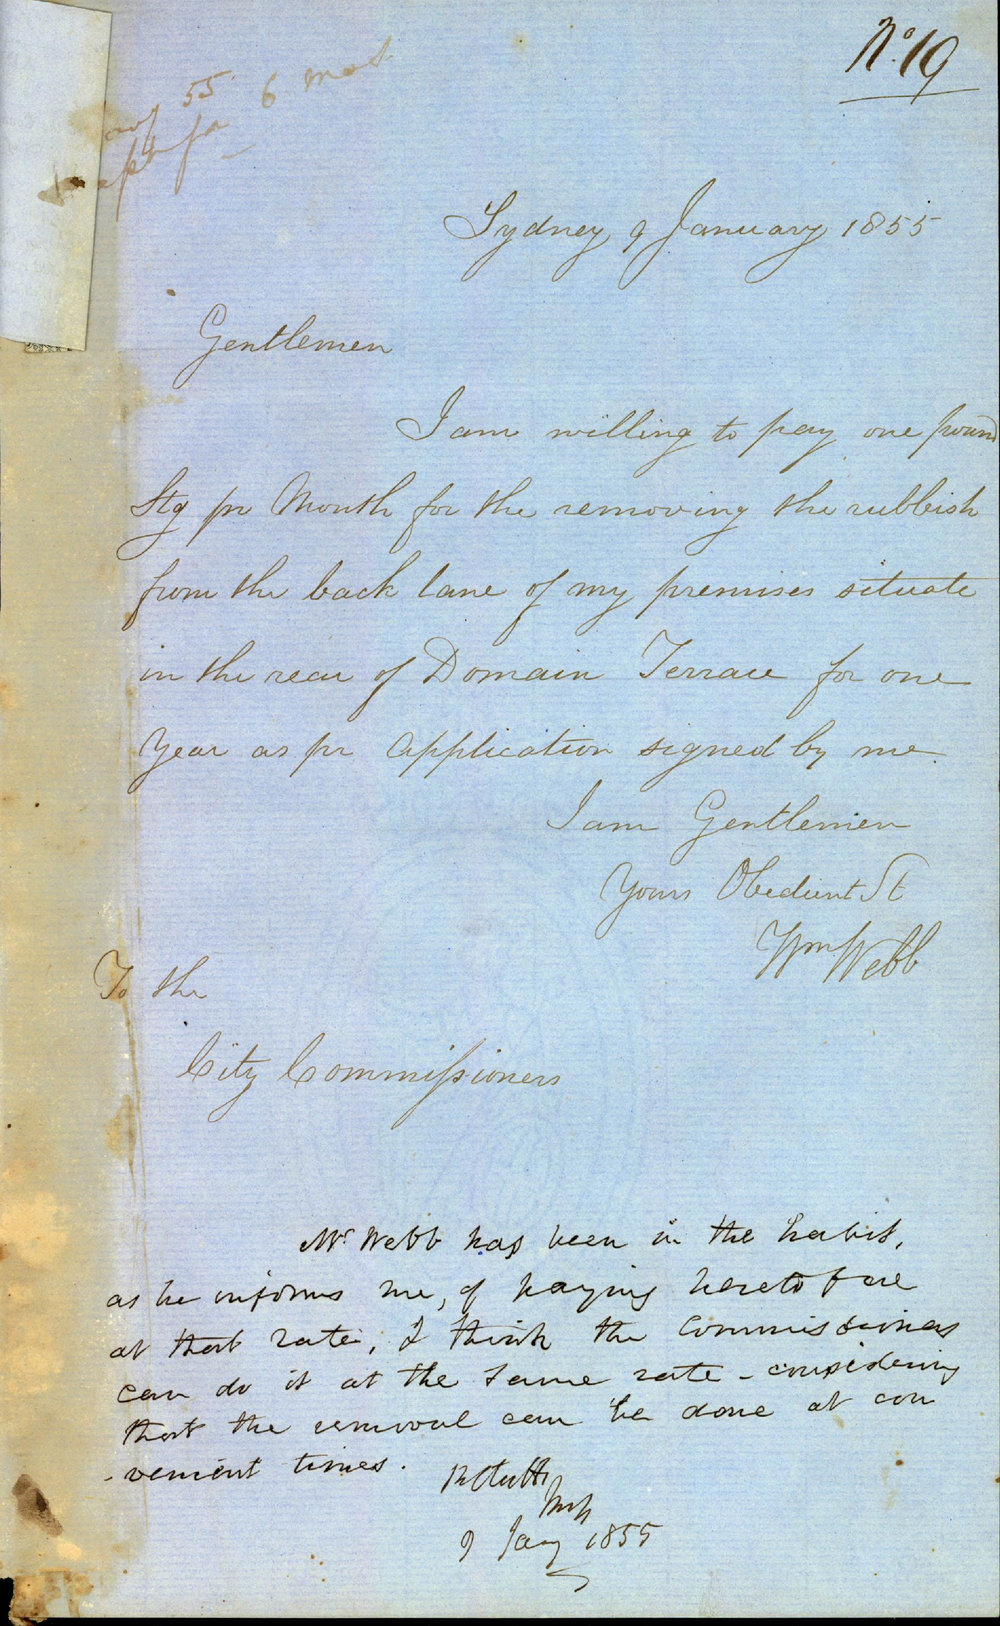 No. 19
55 6 mos
Sydney 9 January 1855
Gentlemen
I am willing to pay one pound
Stg pr Month for the removing the rubbish
from the back lane of my premises situate
in the rear of Domain Terrace for one
Year as pr Application signed by me.
I am Gentlemen
Yours Obedient St
Wm Webb
To the
City Commissioners
Mr. Webb has been in the habit,
as he informs me, of paying heretofore
at that rate, I think the Commissioners
can do it at the same rate - considering
that the removal can be done at con
-venient times.
9 Jany 1855